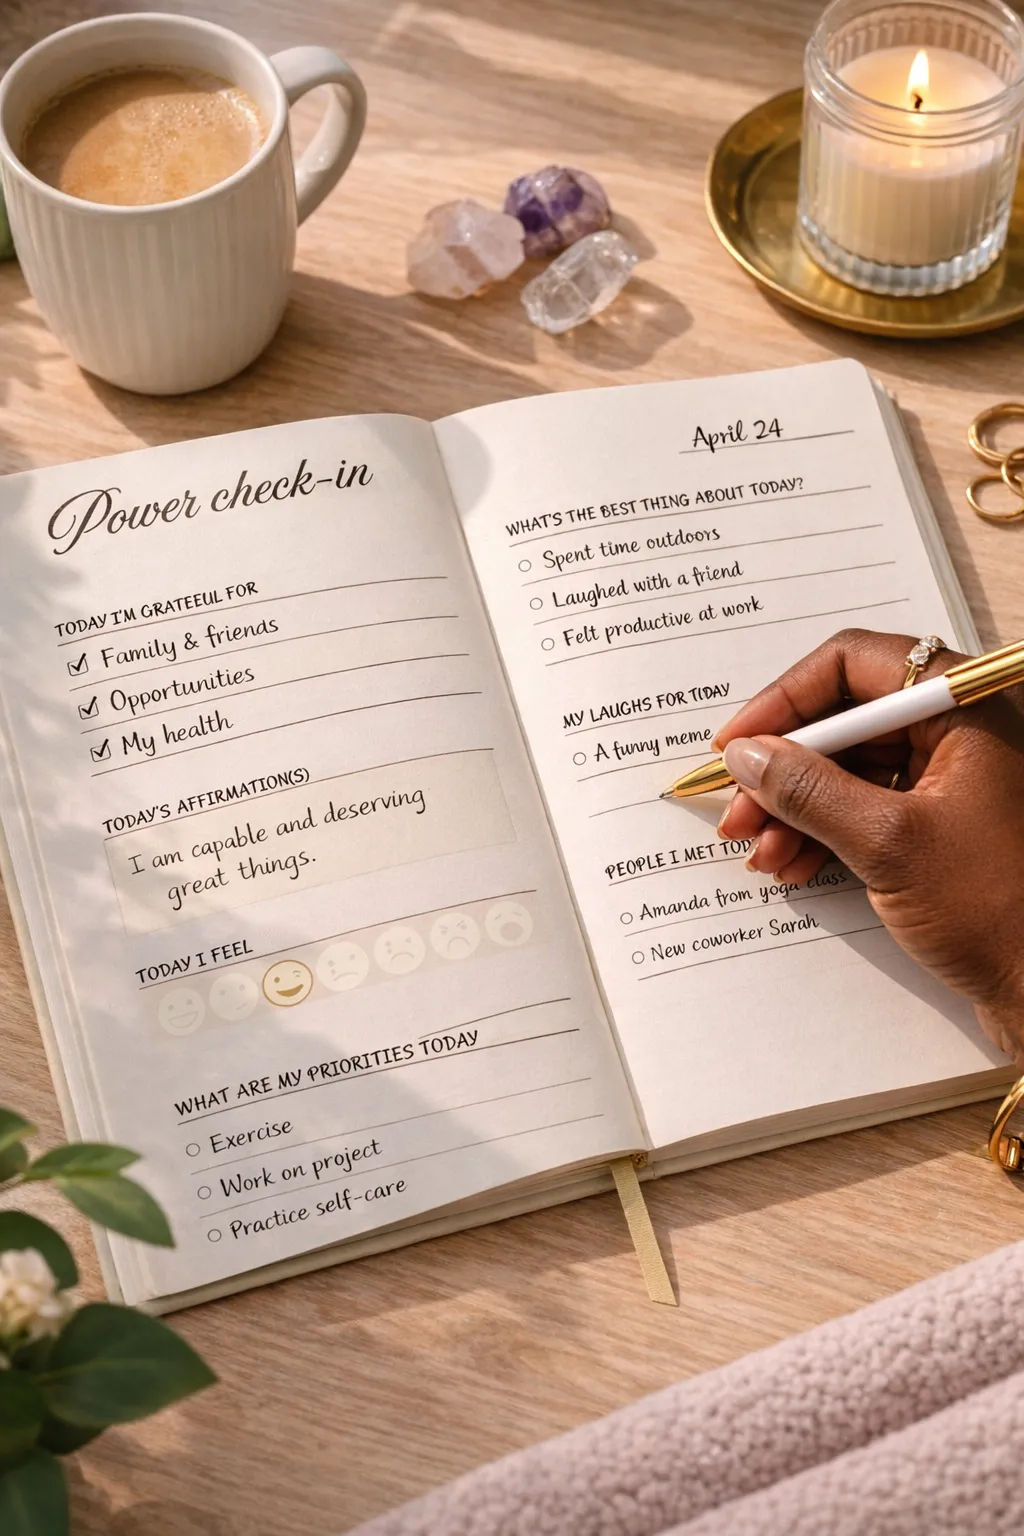 Power check-in
TODAY I'M GRATEEUL FOR
Family & friends
Opportunities
My health
TODAY'S AFFIRMATION(S)
I am capable and deserving
great things.
TODAY I FEEL
WHAT ARE MY PRIORITIES TODAY
Exercise
Work on project
Practice self-care
April 24
WHAT'S THE BEST THING ABOUT TODAY?
Spent time outdoors
Laughed with a friend
Felt productive at work
MY LAUGHS FOR TIDAY
A funny meme
PEOPLE I MET TOD
Amanda from yoga class
New coworker Sarah